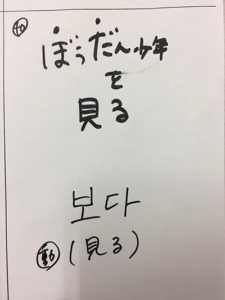 ぼうだん少年
を
見る
보다
動 (見る)